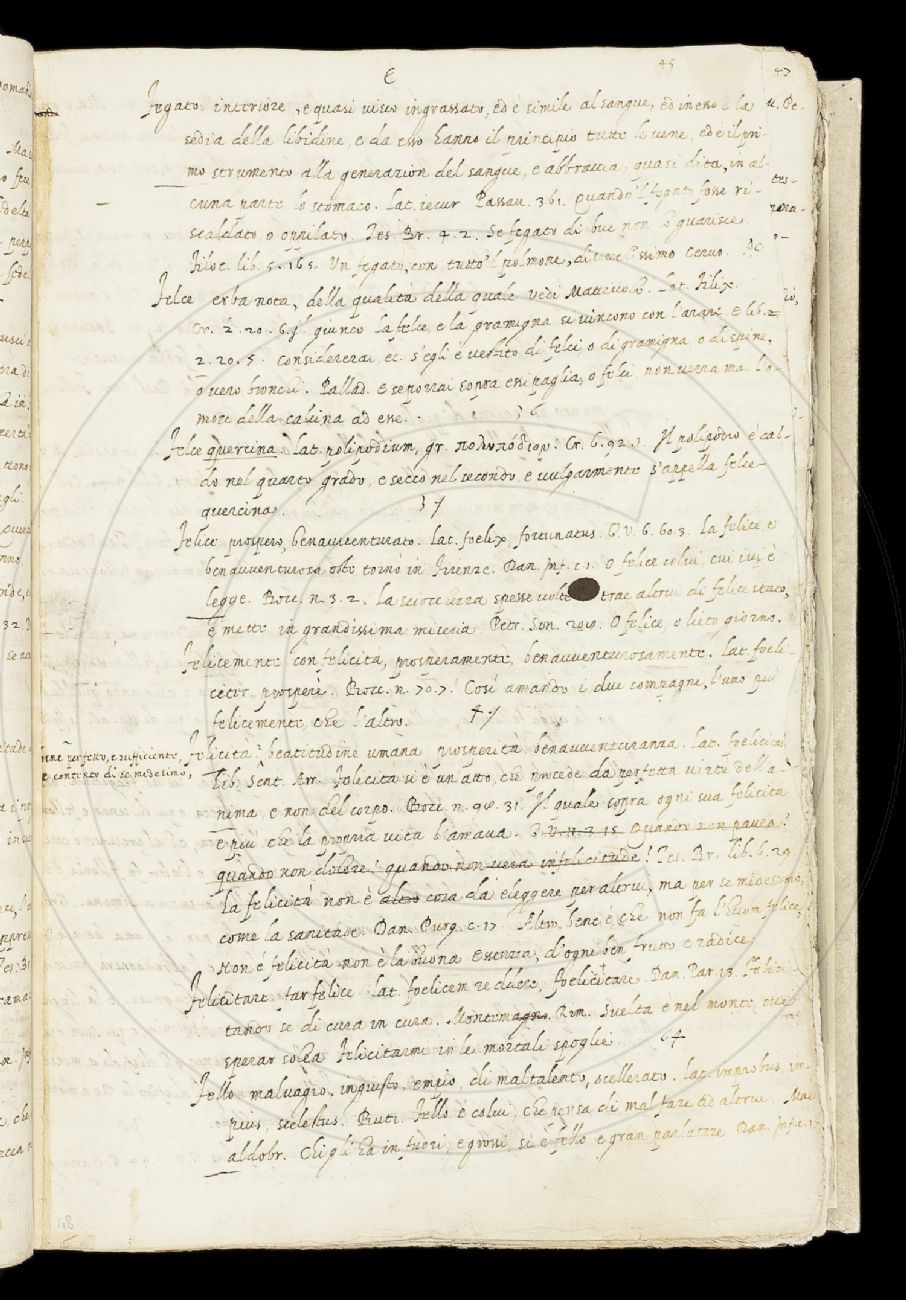 E
45
43
Fegato interiore, e quasi viso ingrassato, ed è simile al sangue, ed in esso è la
sedia della libidine, e da esso hanno il principio tutte le vene, ed è il pri-
mo strumento alla generazion del sangue, e abbraccia, quasi dita, in al-
cuna parte lo stomaco. Lat. iecur Passav. 361. Quando 'l fegato fosse ri-
scaldato o oppilato. Tes. Br. 4. 2. Se fegato di bue non lo guarisce
Filoc. lib. 5. 165. Un fegato, con tutto 'l polmone, di cervo.
Felce erba nota, della qualità della quale vedi Mattiuolo. Lat. Filix.
Cr. 2. 20. 6. Il giunco la felce, e la gramigna si vincono con l'arare. E lib. 2.
2. 20. 5. Considererai, ec. s'egli è vestito di felci o di gramigna, o di spine,
o vero bronchi. Pallad. E se porrai sopra essi paglia, o felci, non verrà mai l'o-
more della calcina ad esse.
36
Felce quercina. Lat. polipodium, gr. πολυπόδιον. Cr. 6. 92. 1. Il polipodio è cal-
do nel quarto grado, e secco nel secondo, e vulgarmente s'appella felce
quercina.
37
Felice prospero, benavventurato. Lat. foelix, fortunatus. G. V. 6. 60. 3. La felice, e
benavventurosa oste tornò in Firenze. Dan. Inf. c. 1. O felice colui, cui ivi è
legge. Bocc. n. 3. 2. La sciocchezza spesse volte trae altrui di felice stato,
e mette in grandissima miseria. Petr. Son. O felice, o lieto giorno.
Felicemente con felicità, prosperamente, benavventurosamente. Lat. foeli-
citer, prosperè. Bocc. n. 70. 7. Così amando i due compagni, l'uno più
felicemente, che l'altro.
47
Felicità beatitudine umana prosperità benavventuranza. Lat. foelicitas
bene perfetto, e sufficiente,
e contento di se medesimo,
Lib. Sent. Arr. Felicità si è un atto, che procede da perfetta virtù dell'a-
nima e non del corpo. Bocc. n. 31. Il quale sopra ogni sua felicità
e più che la propria vita l'amava. G. V. 15 Quando non paura!
quando non dolore! quando non vera infelicitude! Tes. Br. lib. 6. 29
La felicità non è altro cosa da eleggere per altrui, ma per se medesimo,
come la sanitade. Dan. Purg. c. 17. Altro bene è che non fa l'huom felice,
Non è felicità non è la buona essenzia, d'ogni ben frutto e radice
Felicitare far felice. Lat. foelicem reddere, foelicitare. Dan. Par. 13. Felici
tando se di cura in cura. Montemagn. Rim. Svelta è nel monte, ove
sperar solea Felicitarmi in le mortali spoglie.
64
Fello malvagio, ingiusto, empio, di maltalento, scellerato. Lat. improbus, im-
pius, scelestus. Buti. Fello è colui, che pensa di mal fare ad altrui. Mae
aldobr. Chi gli ha in fuori, e grossi, si è fello e gran parlatore Dan. Inf. c. 17